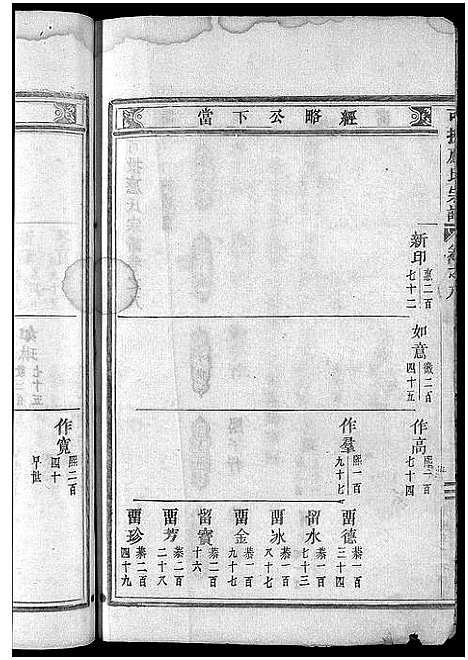 經略公下當
新印 二百七十二
如意 徽二百四十五
作高 熙二百七十四
作羣 熙一百九十七
畱德 恭一百三十四
畱水 恭一百七十三
畱冰 恭一百八十七
畱金 恭一百九十七
畱寶 恭二百十六
畱芳 恭二百二十八
畱珍 恭二百四十九
作寬 熙二百四十 早世